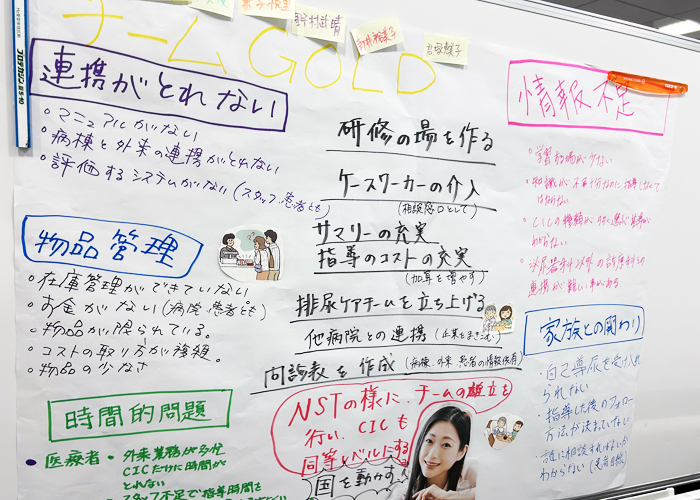 チームGOLD
連携がとれない
・マニュアルがない
・病棟と外来の連携がとれない
・評価するシステムがない(スタッフ・患者とも)
物品管理
・在庫管理ができていない
・お金がない(病院・患者とも)
・物品が限られている。
・コストの取り方が複雑。
・物品の少なさ
時間的問題
・医療者・外来業務が多忙
CICだけに時間が
とれない
・スタッフ不足で指導時間を
研修の場を作る
ケースワーカーの介入
(相談窓口として)
サマリーの充実
指導のコストの充実
(加算を増やす)
排尿ケアチームを立ち上げる
他病院との連携(企業をまきこむ)
問診表を作成(病棟、外来 患者の情報共有)
NSTの様に、チームの確立を
行い、CICも
同等レベルにする
国を動かす
情報不足
・学習の場が少ない
・知識が不十分なのに指導しなくて
はならない
・CICの種類が多く選ぶ基準が
わからない
・泌尿器科以外の診療科との
連携が難しい事がある
家族との関わり
・自己導尿を受け入れ
られない
・指導した後のフォロー
方法が決まっていない
・誰に相談すればよいか
わからない(患者自身)